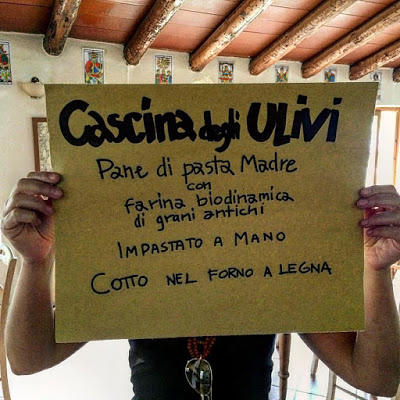 Cascina degli ULIVI
Pane di pasta Madre
con
farina biodinamica
di grani antichi
IMPASTATO A MANO
COTTO NEL FORNO A LEGNA